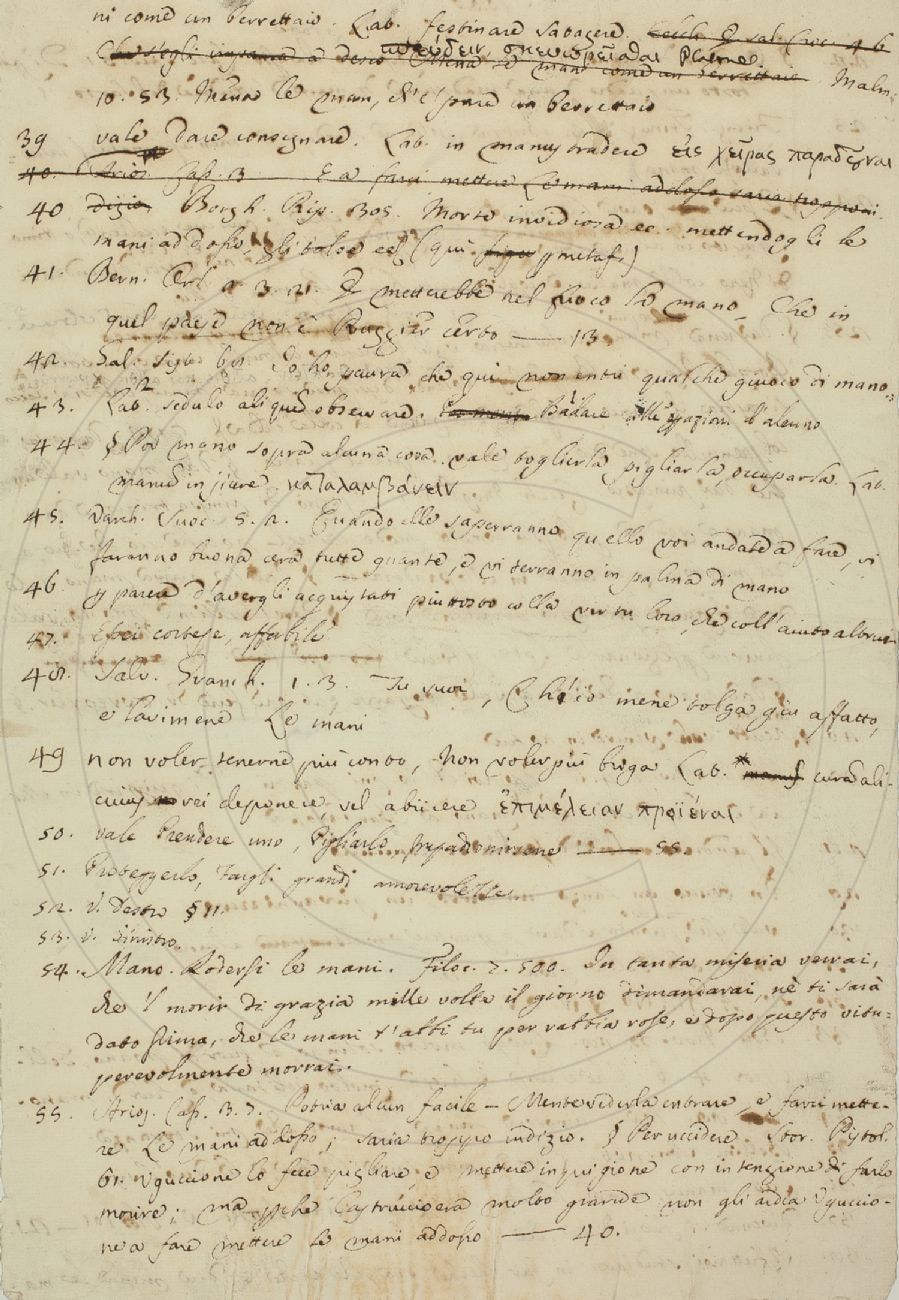 ni come un berrettaio. Lat. festinare satagere. Cecch.
σπεύδειν, σκευωρεῖσθαι Plauto. Malm.
10. 53. Mena le man, ch'e' pare un berrettaio
39 vale Dare consegnare. Lat. in manus tradere εἰς χεῖρας παραδοῦναι
40. Arios. Cas. 3. E a farci mettere Le mani addosso saria troppo in
40 dizio. Borgh. Rip. 305. Morte invidiosa ec. mettendogli le
mani addosso, gli tolse ec. (qui metaf.)
41. Bern. Orl. 2. 3. 21. E metterebbe nel fuoco la mano, Che in
quel paese non è Ruggier certo — 13
42. Sal. Sper. Io ho paura che qui non entri qualche giuoco di mano
43. Lat. sedulo aliquem observare. Badare alle azioni d'alcuno
44. § Por mano sopra alcuna cosa vale togliersla pigliarla, occuparla Lat.
manum injicere. καταλαμβάνειν
45. Varch. Suoc. 5. 2. Quando elle saperranno quello voi andate a fare, vi
faranno buona cera tutte quante, e vi terranno in palma di mano
46 parere d'avergli acquistati piuttosto colla virtù loro, che coll'aiuto altrui
47. Esser cortese, affabile
48. Salv. Granch. 1. 3. Tu vuoi, Ch'io mene tolga giu affatto,
e lavimene Le mani
49 non voler tenerne più conto, Non voler più briga Lat. manus curam ali-
cuius rei deponere vel abiicere ἐπιμέλειαν προϊέναι
50. vale Prendere uno, Pigliarlo, impadronirsene — 55
51. Proteggerlo, fargli grandi amorevolezze.
52. V. Destro § 11.
53. V. Sinistro.
54. Mano. Rodersi le mani. Filoc. 7. 500. In tanta miseria verrai,
che 'l morir di grazia mille volte il giorno dimandarai, nè ti sarà
dato prima, che le mani t'abbi tu per rabbia rose, e dopo questo vitu=
perevolmente morrai.
55. Arios. Cas. 3. 7. Potria alcun facile – Mente vederla entrare, e farci mette-
re Le mani addosso; saria troppo indizio. § Per uccidere. Stor. Pistol.
61. Uguccione lo fece pigliare, e mettere in prigione con intenzione di farlo
morire; ma perchè Castruccio era molto grande non gli ardia Uguccio-
ne a fare mettere le mani addosso — 40.